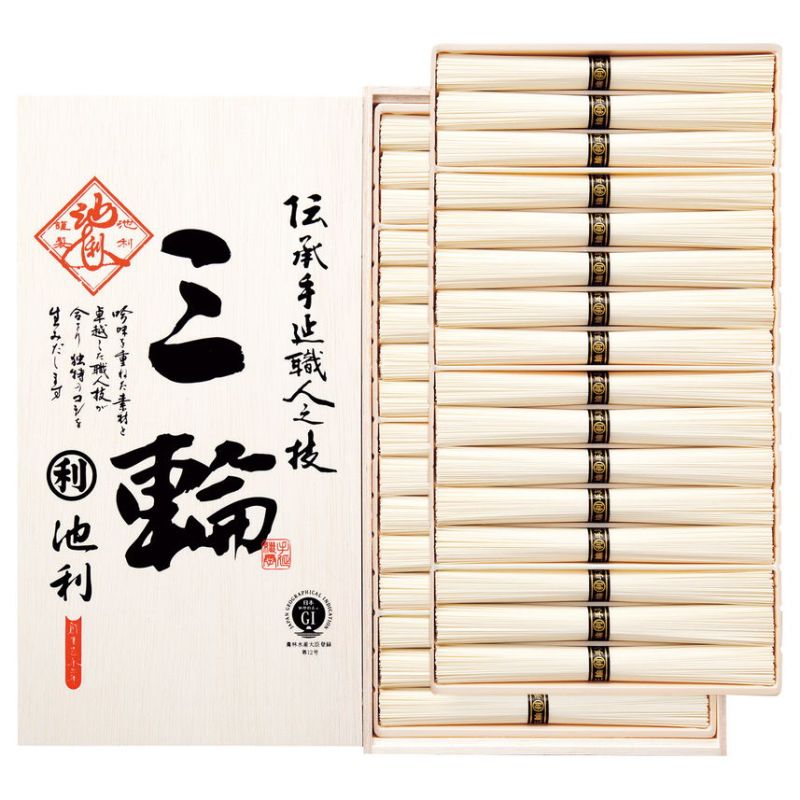 伝承手延職人之技
三輪
池利
池利
謹製
吟味を重ねた素材と
卓越した職人技が
合まり 独特のコシを
生みだします
利
池利
手延
JAPAN GEOGRAPHICAL INDICATION
日本
地理的表示
GI
農林水産大臣登録
第12号